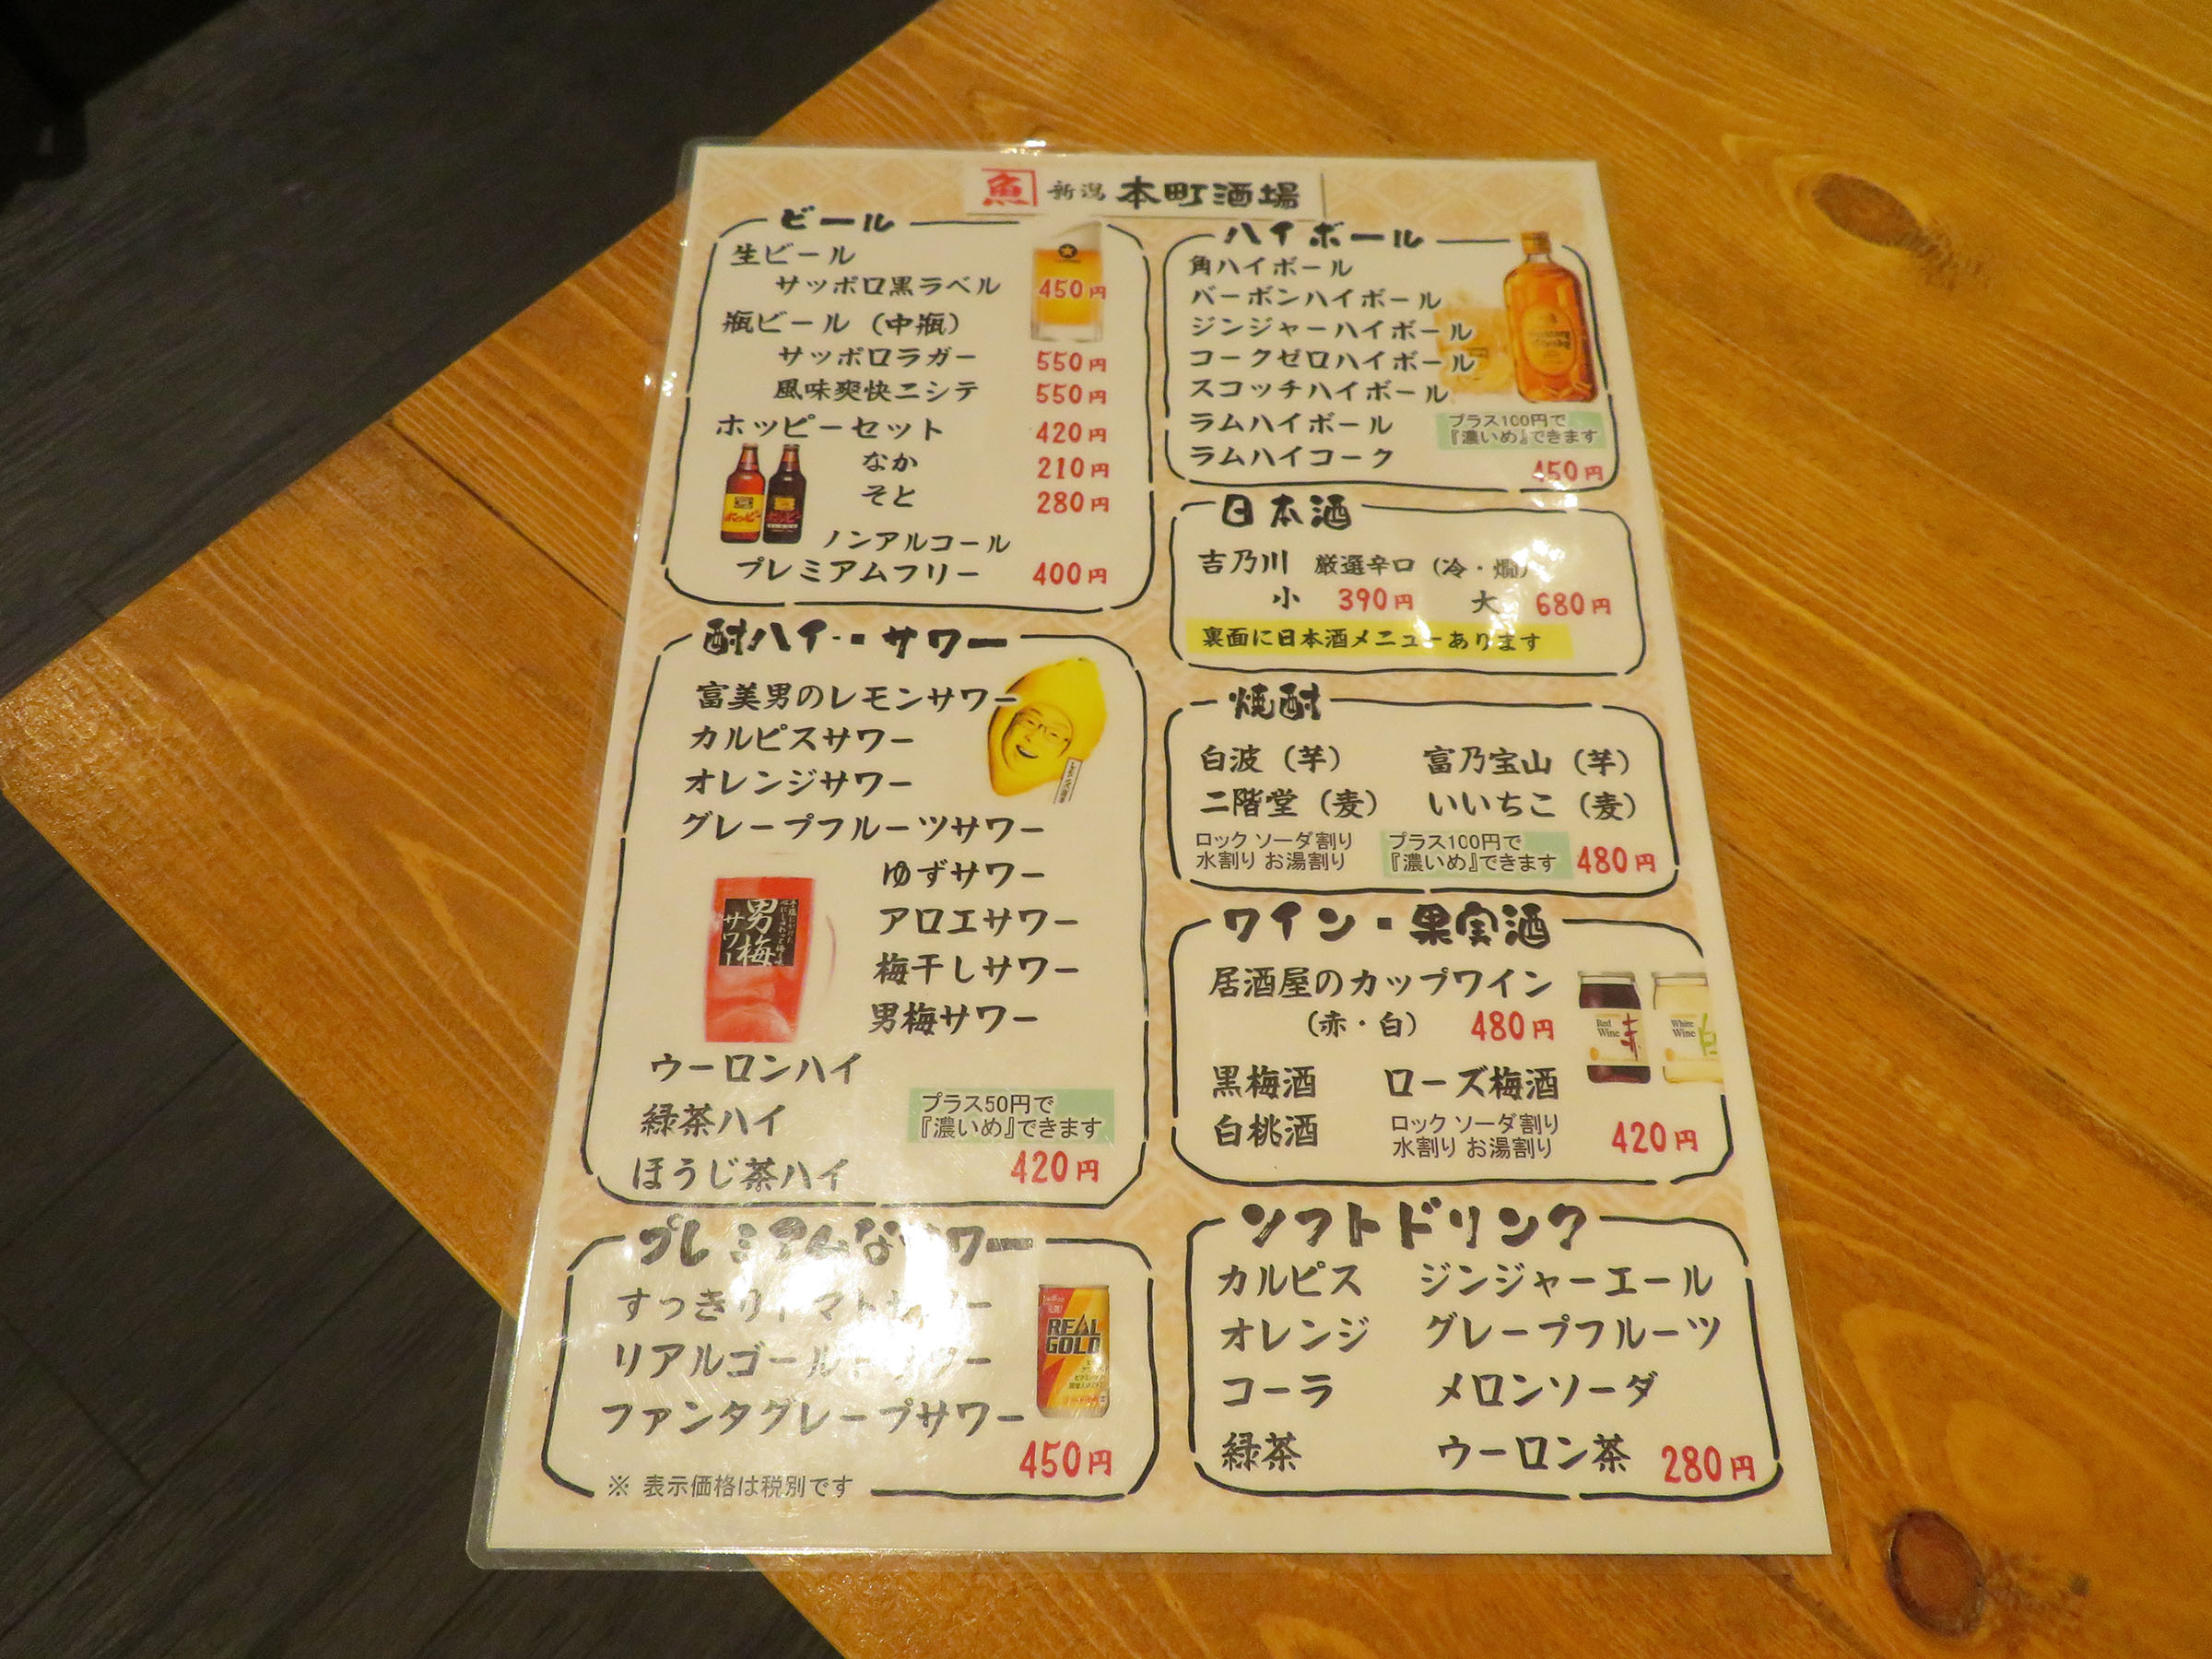 魚 新潟 本町酒場
ビール
生ビール
サッポロ黒ラベル 450円
瓶ビール（中瓶）
サッポロラガー 550円
風味爽快ニシテ 550円
ホッピーセット 420円
なか 210円
そと 280円
ノンアルコール
プレミアムフリー 400円
酎ハイ・サワー
富美男のレモンサワー
カルピスサワー
オレンジサワー
グレープフルーツサワー
ゆずサワー
アロエサワー
梅干しサワー
男梅サワー
男梅
サワー
ウーロンハイ
緑茶ハイ
ほうじ茶ハイ
プラス50円で
『濃いめ』できます
420円
プレミアムなサワー
すっきりトマトサワー
リアルゴールドサワー
ファンタグレープサワー
REAL
GOLD
450円
※ 表示価格は税別です
ハイボール
角ハイボール
バーボンハイボール
ジンジャーハイボール
コークゼロハイボール
スコッチハイボール
ラムハイボール
ラムハイコーク
プラス100円で
『濃いめ』できます
450円
日本酒
吉乃川 厳選辛口（冷・燗）
小 390円 大 680円
裏面に日本酒メニューあります
焼酎
白波（芋） 富乃宝山（芋）
二階堂（麦） いいちこ（麦）
ロック ソーダ割り
水割り お湯割り
プラス100円で
『濃いめ』できます
480円
ワイン・果実酒
居酒屋のカップワイン
（赤・白） 480円
Red
Wine
赤
White
Wine
白
黒梅酒 ローズ梅酒
白桃酒
ロック ソーダ割り
水割り お湯割り
420円
ソフトドリンク
カルピス ジンジャーエール
オレンジ グレープフルーツ
コーラ メロンソーダ
緑茶 ウーロン茶 280円